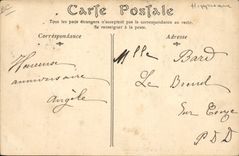 Carte Postale
Tous les pays étrangers n'acceptent pas la correspondance au recto.
Se renseigner à la poste.
Correspondance
Adresse
Heureuse
anniversaire
Angèle
Mlle Bard
Le
sur
P D D